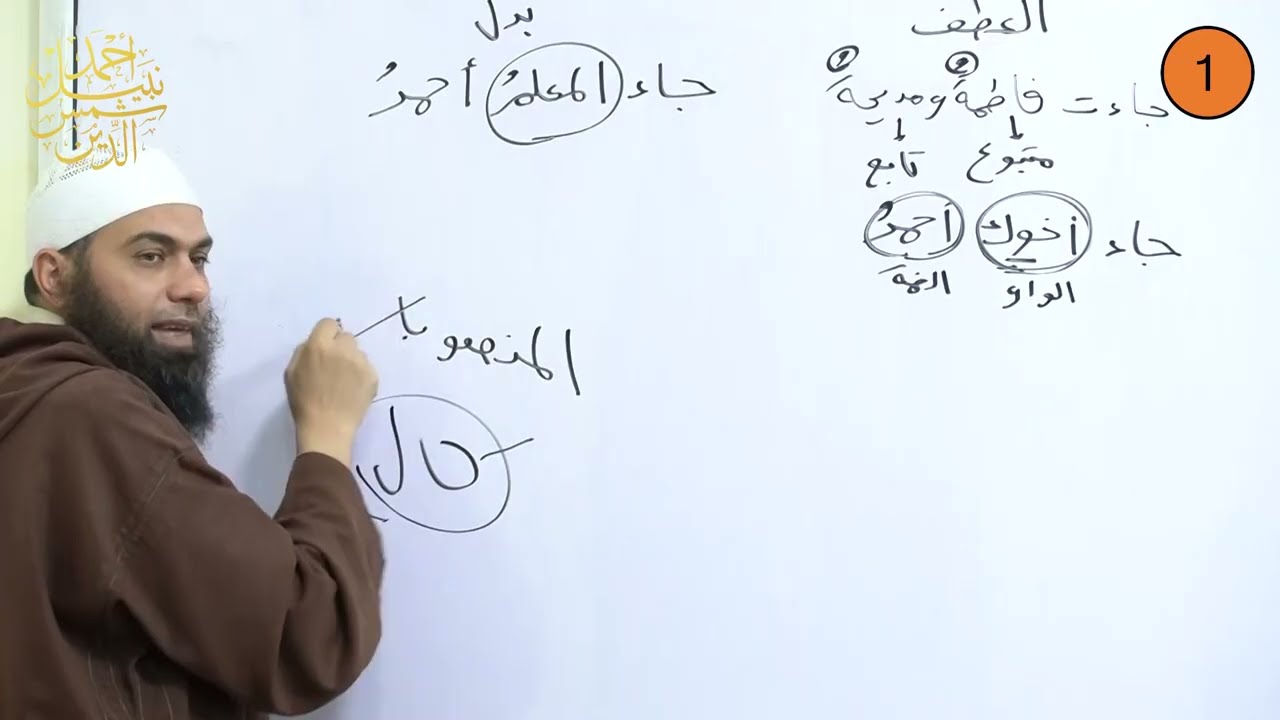 العطف
① ②
جاءت فاطمةُ ومديحةُ
متبوع تابع
جاء أخوك أحمدُ
الواو الضمة
بدل
جاء المعلمُ أحمدُ
المنصوبا
أحمد
نبيل
شمس
الدين
1